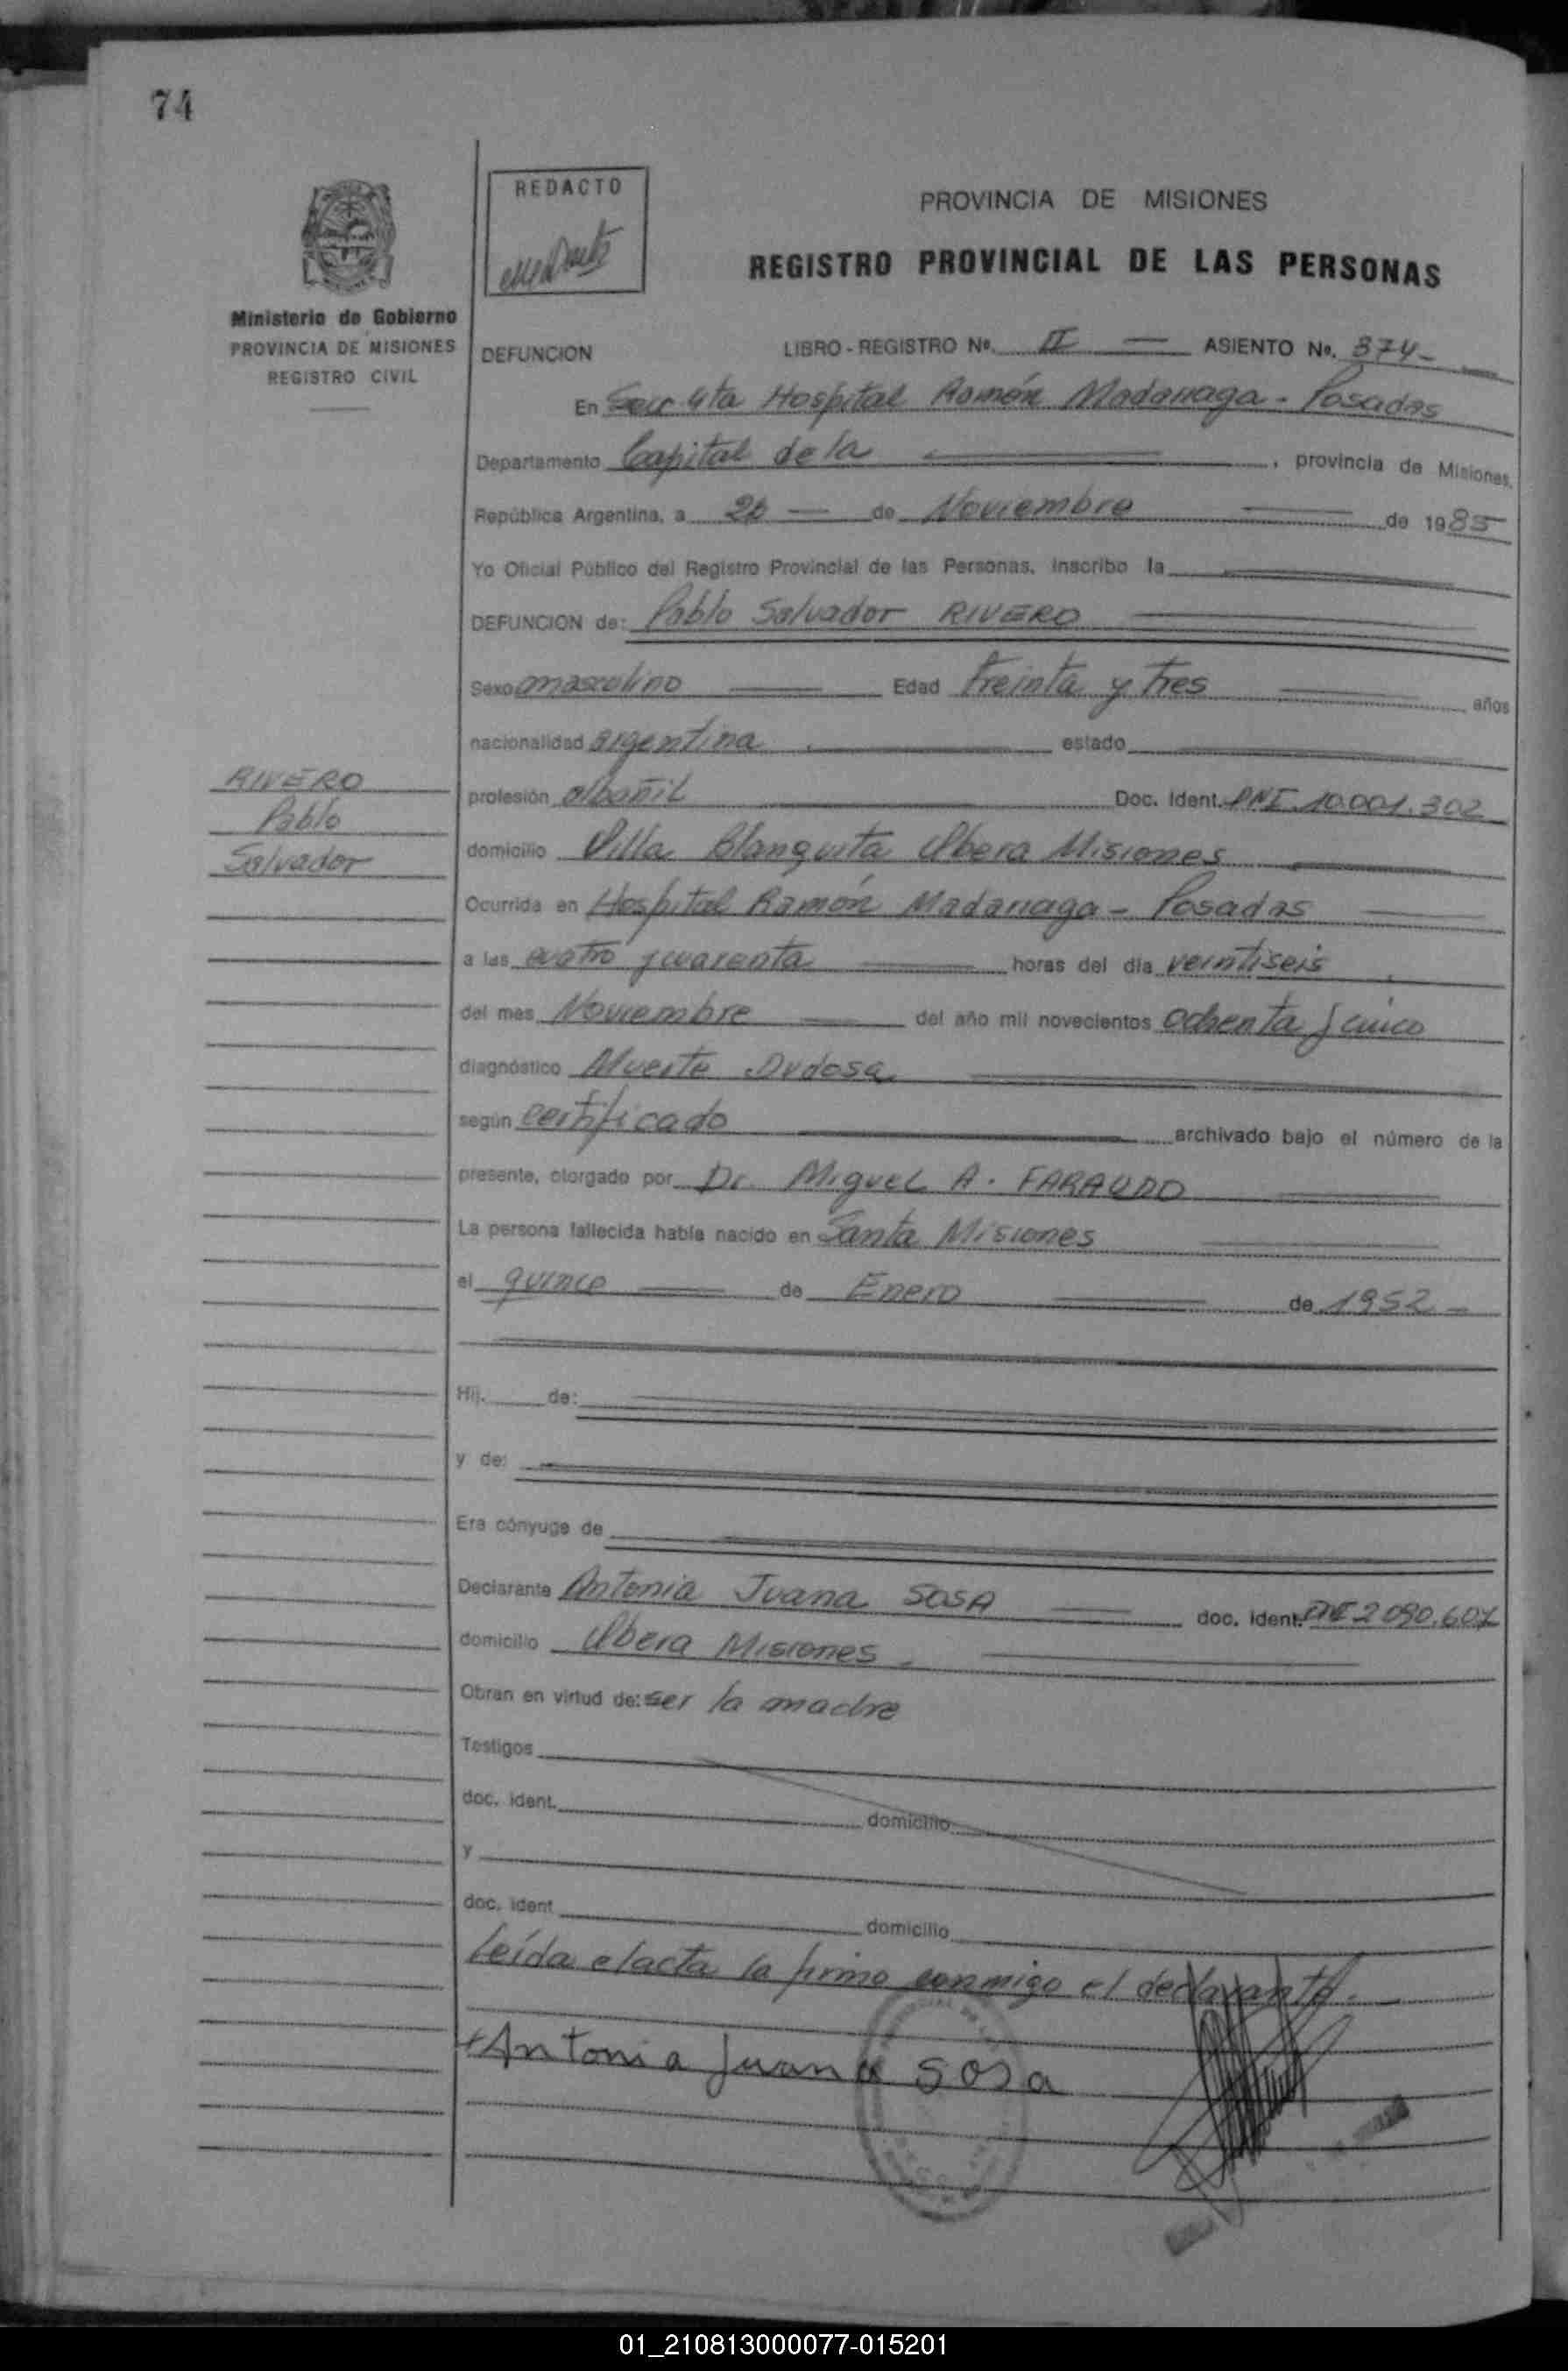 74
REDACTO
PROVINCIA DE MISIONES
REGISTRO PROVINCIAL DE LAS PERSONAS
Ministerio de Gobierno
PROVINCIA DE MISIONES
REGISTRO CIVIL
DEFUNCION LIBRO - REGISTRO Nº. II ASIENTO Nº. 374
En Secc 4ta Hospital Ramón Madariaga - Posadas
Departamento Capital de la , provincia de Misiones,
República Argentina, a 26 de Noviembre de 1985
Yo Oficial Público del Registro Provincial de las Personas, inscribo la
DEFUNCION de: Pablo Salvador RIVERO
Sexo masculino Edad treinta y tres años
nacionalidad argentina estado
RIVERO
Pablo
Salvador
profesión albañil Doc. Ident. DNI 10.001.302
domicilio Villa Blanquita Obera Misiones
Ocurrida en Hospital Ramón Madariaga - Posadas
a las cuatro y cuarenta horas del día veintiseis
del mes Noviembre del año mil novecientos ochenta y cinco
diagnóstico Muerte Dudosa
según certificado archivado bajo el número de la
presente, otorgado por Dr. Miguel A. FARAUDO
La persona fallecida había nacido en Santa Misiones
el quince de Enero de 1952
Hij. de:
y de:
Era cónyuge de
Declarante Antonia Juana SOSA doc. ident. 2090.607
domicilio Obera Misiones
Obran en virtud de: ser la madre
Testigos
doc. ident. domicilio
y
doc. ident domicilio
Leída el acta la firma conmigo el declarante.
Antonia Juana Sosa
01_210813000077-015201